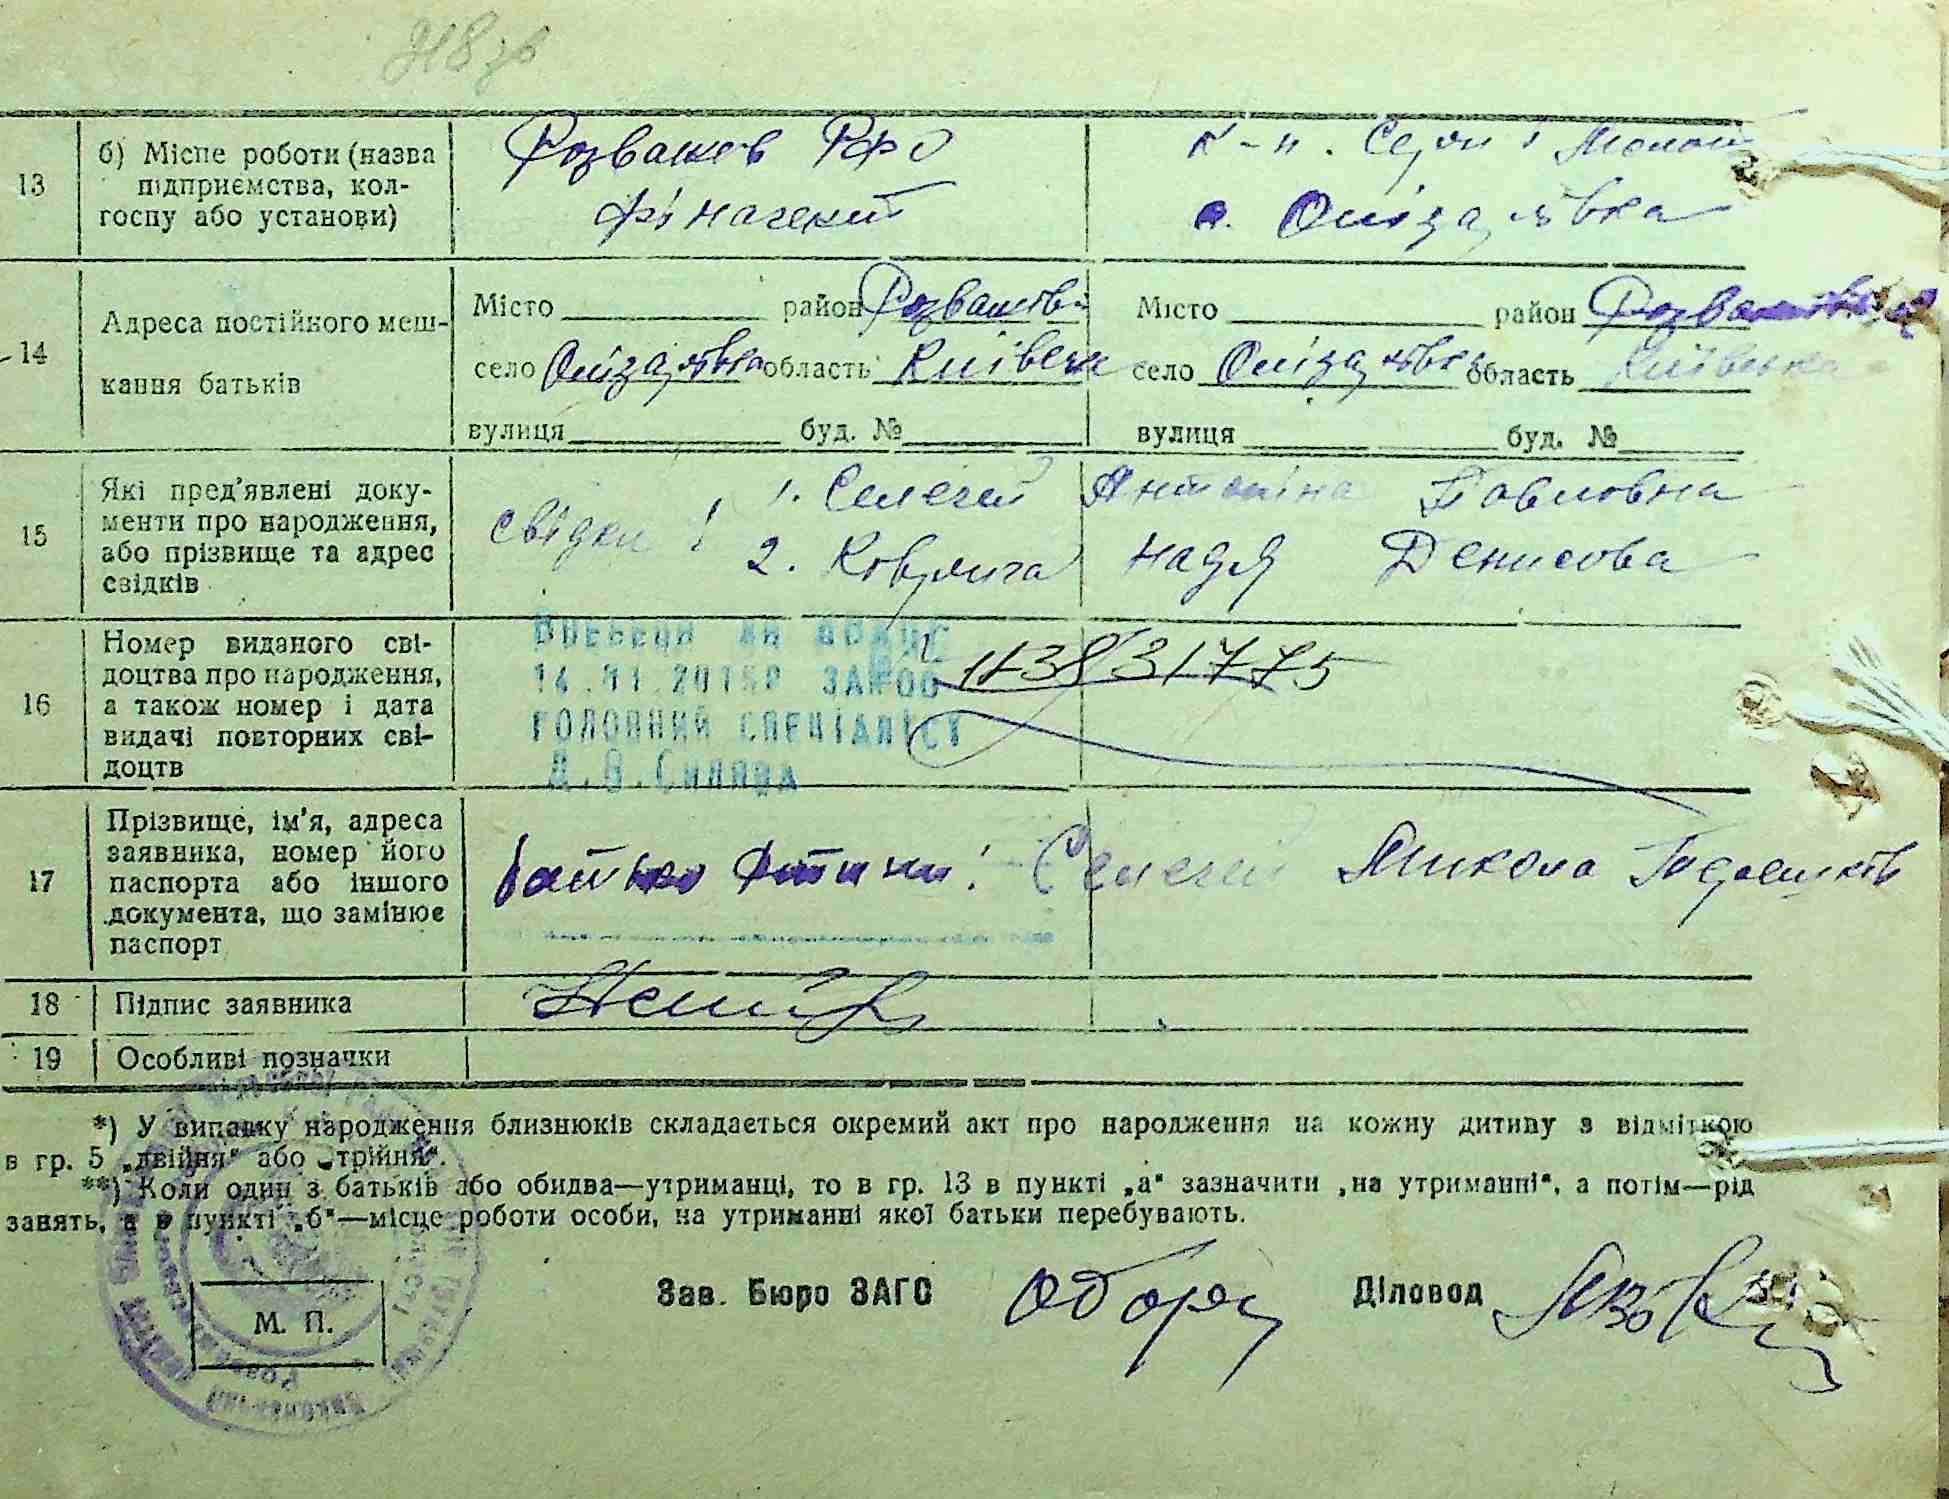 13 б) Місце роботи (назва підприємства, колгоспу або установи)
Розважев РФО
к-п. Серп і Молот
с. Онізамівка
14 Адреса постійного мешкання батьків
Місто район Розважів
село область Київськ
вулиця буд. №
Місто район
село область Київська
вулиця буд. №
15 Які пред'явлені документи про народження, або прізвище та адрес свідків
свідки: 1. Селегей Антоніна Павловна
2. Надя Денисова
16 Номер виданого свідоцтва про народження, а також номер і дата видачі повторних свідоцтв
ГОЛОВНИЙ СПЕЦІАЛІСТ
17 Прізвище, ім'я, адреса заявника, номер його паспорта або іншого документа, що замінює паспорт
батько дитини: Селегей Микола
18 Підпис заявника
19 Особливі позначки
*) У випавку народження близнюків складається окремий акт про народження на кожну дитину з відміткою
в гр. 5 „двійня" або „трійня".
**) Коли один з батьків або обидва—утриманці, то в гр. 13 в пункті „а" зазначити „на утриманні", а потім—рід
занять, а в пункті „б"—місце роботи особи, на утриманні якої батьки перебувають.
Зав. Бюро ЗАГС Діловод
М. П.